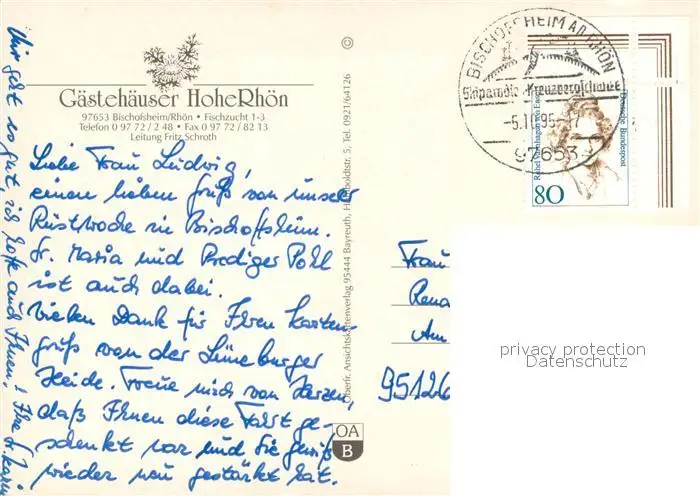 Gästehäuser HoheRhön
97653 Bischofsheim/Rhön • Fischzucht 1-3
Telefon 0 97 72 / 2 48 • Fax 0 97 72 / 82 13
Leitung Fritz Schroth
Liebe Frau Ludwig,
einen lieben Gruß von unserer
Rüstwoche in Bischofsheim.
Sr. Maria und Prediger Pohl
ist auch dabei.
Vielen Dank für Ihren Karten-
gruß von der Lüneburger
Heide. Freue mich von Herzen,
daß Ihnen diese Fahrt ge-
schenkt war und Sie gewiß
wieder neu gestärkt hat.
Mir geht es gut, ich hoffe auch Ihnen! Ihre Sr. Karin
© Oberfr. Ansichtskartenverlag 95444 Bayreuth, Humboldtstr. 5, Tel. 0921/64126
OA
B
BISCHOFSHEIM AN RHÖN
Skiparadies Kreuzbergschanze
97653
Deutsche Bundespost
Rahel Varnhagen von Ense
80
Frau
Rena
Am
95126
privacy protection
Datenschutz